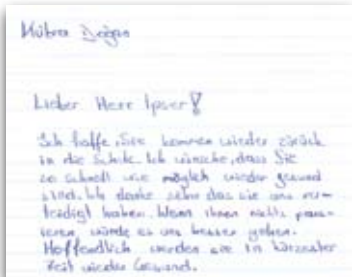 Kübra Doğan
Lieber Herr Ipser!
Ich hoffe, Sie kommen wieder zurück
in die Schule. Ich wünsche, dass Sie
so schnell wie möglich wieder gesund
sind. Ich danke sehr das sie uns ver-
teidigt haben. Wenn ihnen nichts pass-
ieren würde es uns besser gehen.
Hoffendlich werden sie in kürzester
Zeit wieder Gesund.